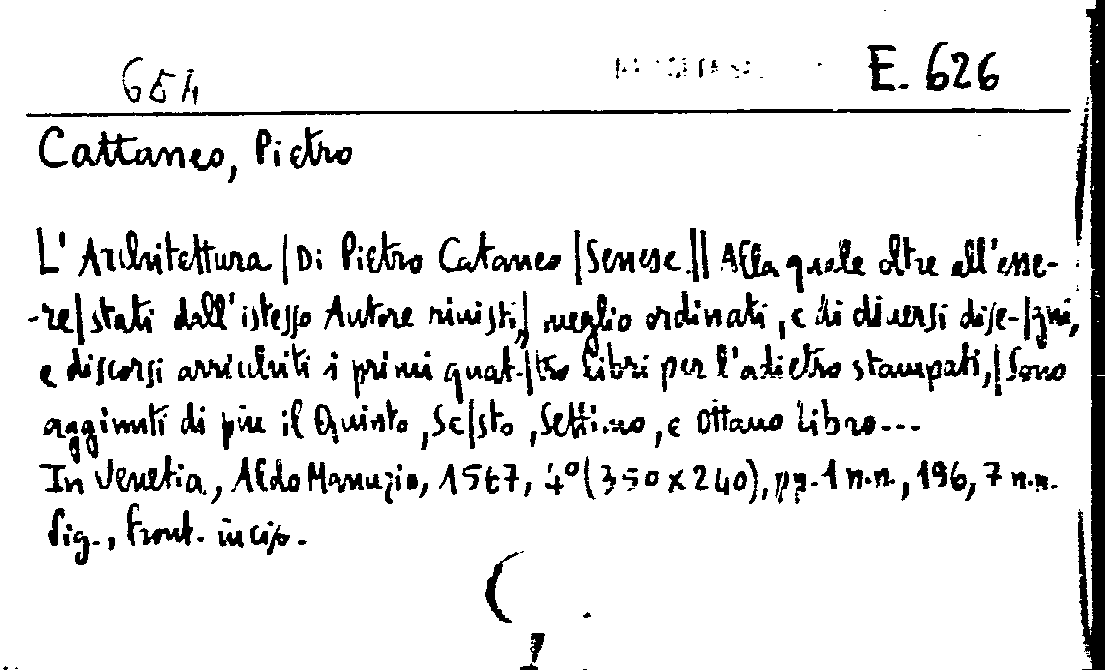 654 E. 626
Cattaneo, Pietro
L'Architettura | Di Pietro Cataneo | Senese. || Alla quale oltre all'esse-
-re | stati dall'istesso Autore rivisti, | meglio ordinati, e di diversi dise- | gni,
e discorsi arricchiti i primi quat- | tro libri per l'adietro stampati, | Sono
aggiunti di piu il Quinto, Se | sto, Settimo, e Ottavo libro...
In Venetia, Aldo Manuzio, 1567, 4° (350 x 240), pp. 1 n.n., 196, 7 n.n.
fig., front. incis.